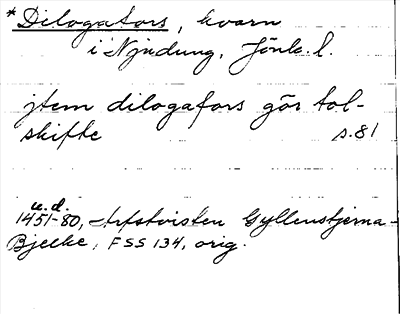 *Dilogafors, kvarn
i Njudung, Jönk. l.
jtem dilogafors gör tol-
skifte s. 81
u.d.
1451-80, Arfstvisten Gyllenstjerna-
Bjelke, FSS 134, orig.